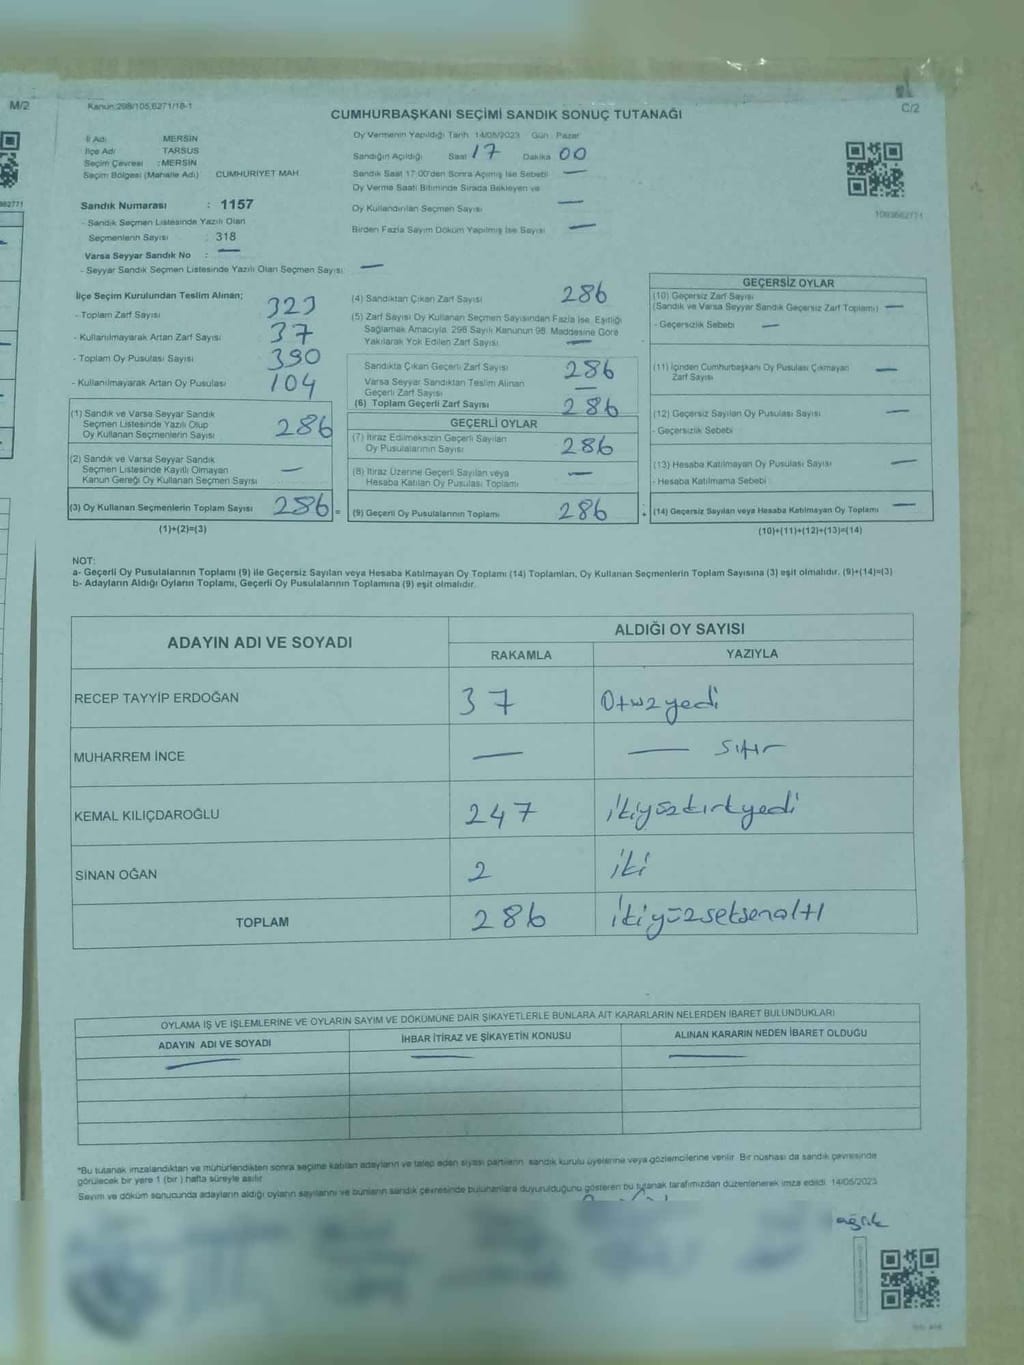 M/2
Kanun:298/105,6271/18-1
C/2
CUMHURBAŞKANI SEÇİMİ SANDIK SONUÇ TUTANAĞI
İl Adı MERSİN
İlçe Adı TARSUS
Seçim Çevresi : MERSİN
Seçim Bölgesi (Mahalle Adı) CUMHURİYET MAH.
Sandık Numarası : 1157
- Sandık Seçmen Listesinde Yazılı Olan
Seçmenlerin Sayısı : 318
Varsa Seyyar Sandık No : —
- Seyyar Sandık Seçmen Listesinde Yazılı Olan Seçmen Sayısı: —
Oy Vermenin Yapıldığı Tarih 14/05/2023 Gün : Pazar
Sandığın Açıldığı Saat 17 Dakika 00
Sandık Saat 17:00'den Sonra Açılmış İse Sebebi —
Oy Verme Saati Bitiminde Sırada Bekleyen ve
Oy Kullandırılan Seçmen Sayısı —
Birden Fazla Sayım Döküm Yapılmış İse Sayısı —
1093662771
62771
İlçe Seçim Kurulundan Teslim Alınan;
- Toplam Zarf Sayısı 323
- Kullanılmayarak Artan Zarf Sayısı 37
- Toplam Oy Pusulası Sayısı 390
- Kullanılmayarak Artan Oy Pusulası 104
(1) Sandık ve Varsa Seyyar Sandık
Seçmen Listesinde Yazılı Olup
Oy Kullanan Seçmenlerin Sayısı 286
(2) Sandık ve Varsa Seyyar Sandık
Seçmen Listesinde Kayıtlı Olmayan
Kanun Gereği Oy Kullanan Seçmen Sayısı —
(3) Oy Kullanan Seçmenlerin Toplam Sayısı 286 =
(1)+(2)=(3)
(4) Sandıktan Çıkan Zarf Sayısı 286
(5) Zarf Sayısı Oy Kullanan Seçmen Sayısından Fazla İse, Eşitliği
Sağlamak Amacıyla, 298 Sayılı Kanunun 98. Maddesine Göre
Yakılarak Yok Edilen Zarf Sayısı —
Sandıkta Çıkan Geçerli Zarf Sayısı 286
Varsa Seyyar Sandıktan Teslim Alınan
Geçerli Zarf Sayısı —
(6) Toplam Geçerli Zarf Sayısı 286
GEÇERLİ OYLAR
(7) İtiraz Edilmeksizin Geçerli Sayılan
Oy Pusulalarının Sayısı 286
(8) İtiraz Üzerine Geçerli Sayılan veya
Hesaba Katılan Oy Pusulası Toplamı —
(9) Geçerli Oy Pusulalarının Toplamı 286 +
GEÇERSİZ OYLAR
(10) Geçersiz Zarf Sayısı
(Sandık ve Varsa Seyyar Sandık Geçersiz Zarf Toplamı) —
- Geçersizlik Sebebi —
(11) İçinden Cumhurbaşkanı Oy Pusulası Çıkmayan
Zarf Sayısı —
(12) Geçersiz Sayılan Oy Pusulası Sayısı —
- Geçersizlik Sebebi
(13) Hesaba Katılmayan Oy Pusulası Sayısı —
- Hesaba Katılmama Sebebi
(14) Geçersiz Sayılan veya Hesaba Katılmayan Oy Toplamı —
(10)+(11)+(12)+(13)=(14)
NOT:
a- Geçerli Oy Pusulalarının Toplamı (9) ile Geçersiz Sayılan veya Hesaba Katılmayan Oy Toplamı (14) Toplamları, Oy Kullanan Seçmenlerin Toplam Sayısına (3) eşit olmalıdır. (9)+(14)=(3)
b- Adayların Aldığı Oyların Toplamı, Geçerli Oy Pusulalarının Toplamına (9) eşit olmalıdır.
ADAYIN ADI VE SOYADI ALDIĞI OY SAYISI
RAKAMLA YAZIYLA
RECEP TAYYİP ERDOĞAN 37 Otuzyedi
MUHARREM İNCE — — Sıfır
KEMAL KILIÇDAROĞLU 247 ikiyüzkırkyedi
SİNAN OĞAN 2 iki
TOPLAM 286 ikiyüzseksenaltı
OYLAMA İŞ VE İŞLEMLERİNE VE OYLARIN SAYIM VE DÖKÜMÜNE DAİR ŞİKAYETLERLE BUNLARA AİT KARARLARIN NELERDEN İBARET BULUNDUKLARI
ADAYIN ADI VE SOYADI İHBAR İTİRAZ VE ŞİKAYETİN KONUSU ALINAN KARARIN NEDEN İBARET OLDUĞU
— — —
*Bu tutanak imzalandıktan ve mühürlendikten sonra seçime katılan adayların ve talep eden siyasi partilerin sandık kurulu üyelerine veya gözlemcilerine verilir. Bir nüshası da sandık çevresinde
görülecek bir yere 1 (bir) hafta süreyle asılır.
Sayım ve döküm sonucunda adayların aldığı oyların sayılarını ve bunların sandık çevresinde bulunanlara duyurulduğunu gösteren bu tutanak tarafımızdan düzenlenerek imza edildi. 14/05/2023